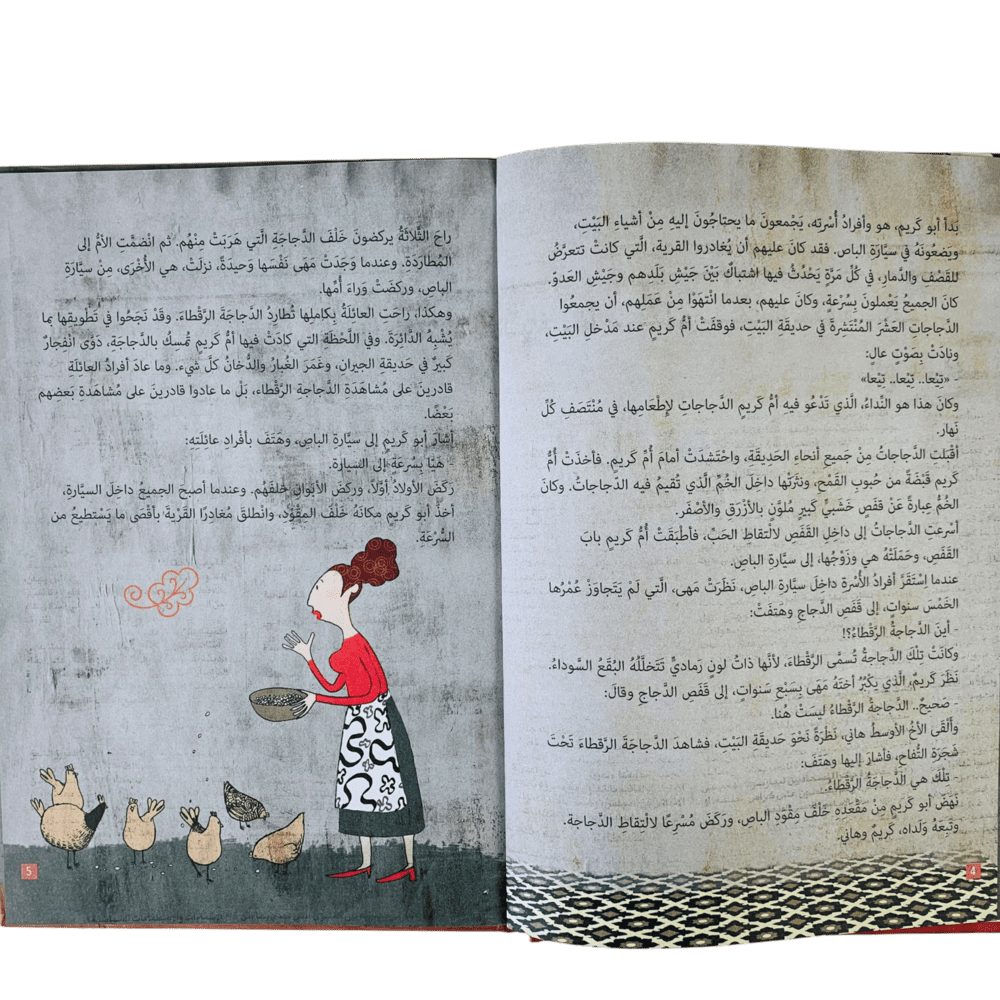 بَدَأَ أبو كَريمٍ، هو وأفرادُ أُسْرته، يَجْمعونَ ما يحتاجُونَ إليهِ مِنْ أشياءِ البَيْتِ،
ويَضعُونَهُ في سيَّارَةِ الباصِ. فقد كانَ عليهم أن يُغادروا القرية، الَّتي كانتْ تتعرَّضُ
للقَصْفِ والدَّمارِ، في كُلِّ مَرَّةٍ يَحْدُثُ فيها اشتباكٌ بَيْنَ جَيْشِ بَلَدِهم وجَيْشِ العَدوِّ.
كانَ الجميعُ يَعْملونَ بِسُرْعةٍ، وكانَ عليهم، بعدما انْتَهَوْا مِنْ عَمَلِهِم، أن يجمعوا
الدَّجاجاتِ العَشْرَ المُنْتَشِرةَ في حديقةِ البَيْتِ، فوقفَتْ أمُّ كَريمٍ عند مَدْخلِ البَيْتِ،
ونادَتْ بِصَوْتٍ عالٍ:
- «تِيْعا.. تِيْعا.. تِيْعا»
وكانَ هذا هو النِّداءُ، الَّذي تَدْعُو فيه أمُّ كَريمٍ الدَّجاجاتِ لإطْعامِها، في مُنْتَصَفِ كُلِّ
نَهار.
أقْبَلَت الدَّجاجاتُ مِنْ جَميعِ أنحاء الحَديقَةِ، واحْتشَدَتْ أمامَ أُمِّ كَريمٍ. فأخذَتْ أُمُّ
كَريم قَبْضَةً من حُبوبِ القَمْحِ، ونثرَتْها داخِلَ الخُمِّ الَّذي تُقيمُ فيه الدَّجاجاتُ. وكانَ
الخُمُّ عِبارةً عَنْ قفَصٍ خَشَبيٍّ كَبيرٍ مُلوَّنٍ بالأزْرَقِ والأصْفَر.
أسْرعتِ الدَّجاجاتُ إلى داخِلِ القَفَصِ لالْتِقاطِ الحَبِّ، فأطبَقَتْ أُمُّ كَريمٍ بابَ
القَفَصِ، وحَمَلَتْهُ هي وزَوْجُها، إلى سيَّارة الباصِ.
عندما اِسْتَقَرَّ أفرادُ الأُسْرةِ داخِلَ سيَّارة الباص، نَظَرَتْ مَهى، الَّتي لَمْ يَتَجاوَزْ عُمْرُها
الخَمْسَ سنواتٍ، إلى قَفَصِ الدَّجاجِ وهَتفَتْ:
- أينَ الدَّجاجةُ الرَّقْطاءُ؟!
وكانَتْ تِلْكَ الدَّجاجةُ تُسمَّى الرَّقْطاءَ، لأنَّها ذاتُ لونٍ رَماديٍّ تَتَخَلَّلُهُ البُقَعُ السَّوداءُ.
نَظَرَ كَريمٌ، الَّذي يَكْبُرُ أختَهُ مَهَى بِسَبْعِ سَنواتٍ، إلى قَفَصِ الدَّجاجِ وقالَ:
- صَحيحٌ.. الدَّجاجةُ الرَّقْطاءُ ليسَتْ هُنا.
وألْقَى الأخُ الأوسطُ هاني، نَظْرَةً نَحْوَ حَديقَةِ البَيْتِ، فشاهدَ الدَّجاجَةَ الرَّقطاءَ تَحْتَ
شَجَرَةِ التُّفاحِ، فأشارَ إليها وهَتَفَ:
- تِلْكَ هي الدَّجاجَةُ الرَّقْطاءُ.
نَهَضَ أبو كَريمٍ مِنْ مَقْعَده خَلْفَ مِقْوَدِ الباصِ، ورَكَضَ مُسْرِعًا لالْتِقاطِ الدَّجاجة.
وتَبِعَهُ وَلَداه، كَريمٌ وهاني.
4
راحَ الثَّلاثَةُ يركضونَ خَلْفَ الدَّجاجَةِ الَّتي هَرَبَتْ مِنْهُم. ثم انْضمَّتِ الأمُّ إلى
المُطارَدَة. وعندما وَجَدَتْ مَهَى نَفْسَها وَحيدَةً، نزلَتْ، هي الأُخْرَى، مِنْ سيَّارَة
الباصِ، وركضَتْ وَراءَ أُمِّها.
وهكَذا، راحَت العائلَةُ بكامِلِها تُطارِدُ الدَّجاجَةَ الرَّقْطاءَ. وقَدْ نَجَحُوا في تَطْويقِها بما
يُشْبِهُ الدَّائِرَةَ. وفي اللَّحْظَةِ التي كادَتْ فيها أمُّ كَريمٍ تُمْسِكُ بالدَّجاجَةِ، دَوَّى انْفِجارٌ
كَبيرٌ في حَديقة الجيرانِ، وغَمَرَ الغُبارُ والدُّخانُ كلَّ شيء. وما عادَ أفرادُ العائلةِ
قادرينَ على مُشاهَدَةِ الدَّجاجة الرَّقْطاء، بَلْ ما عادوا قادرينَ على مُشاهَدَةِ بَعضهم
بَعْضًا.
أشارَ أبو كَريمٍ إلى سيَّارةِ الباصِ، وهَتَفَ بأفْراد عائلَتِهِ:
- هَيَّا بِسُرْعَةٍ إلى السَّيارَة.
رَكَضَ الأولادُ أوَّلاً، وركضَ الأبَوانِ خَلْفَهُم. وعندما أصبحَ الجميعُ داخلَ السيَّارة،
أخذَ أبو كَريمٍ مكانَهُ خَلْفَ المِقْوَدِ، وانْطلَقَ مُغادِرًا القَرْيةَ بأقْصَى ما يَسْتطيعُ من
السُّرْعَةِ.
5